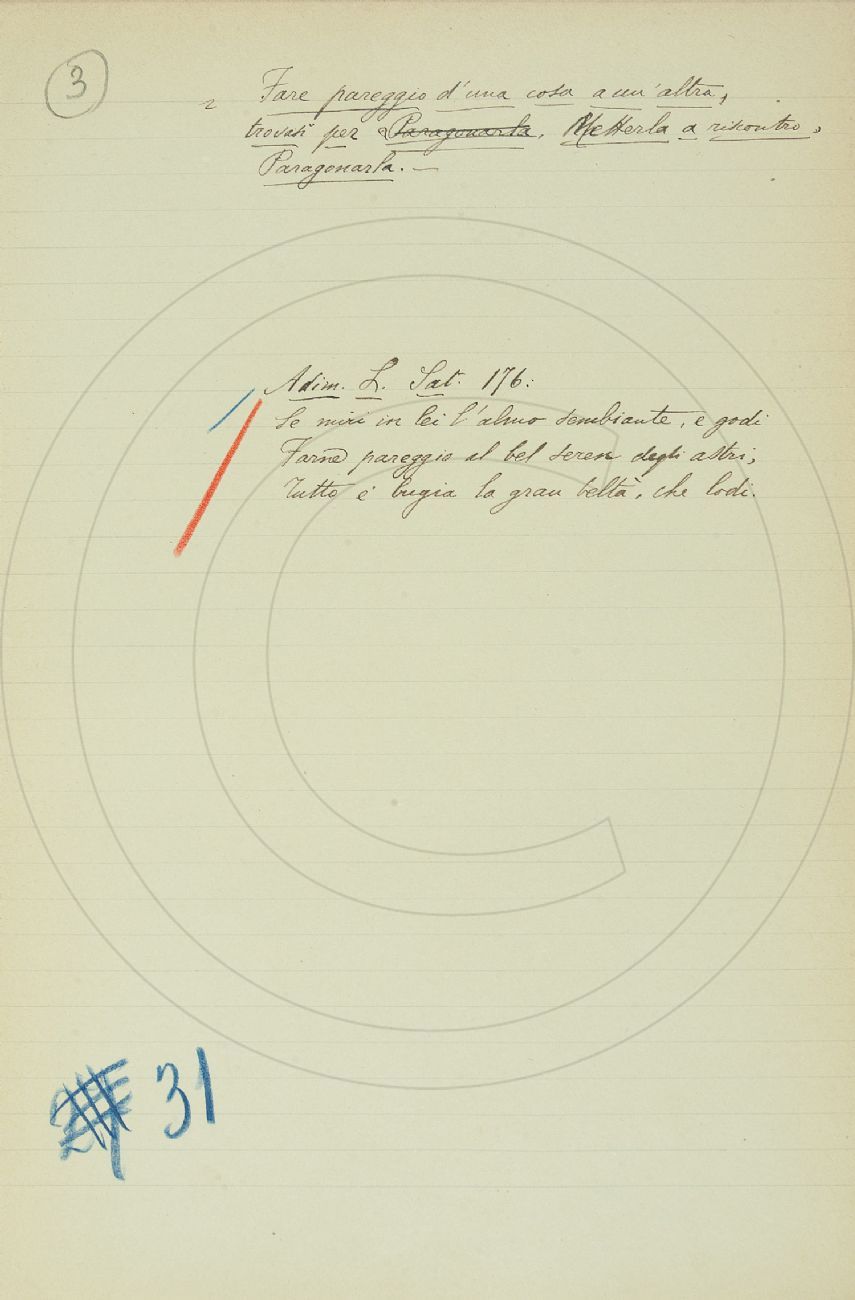 3
Fare pareggio d'una cosa a un'altra,
trovasi per Paragonarla. Metterla a riscontro,
Paragonarla. —
Adim. L. Sat. 176:
Se miri in lei l'almo sembiante, e godi
Farne pareggio al bel seren degli astri,
Tutto è bugia la gran beltà, che lodi.
31